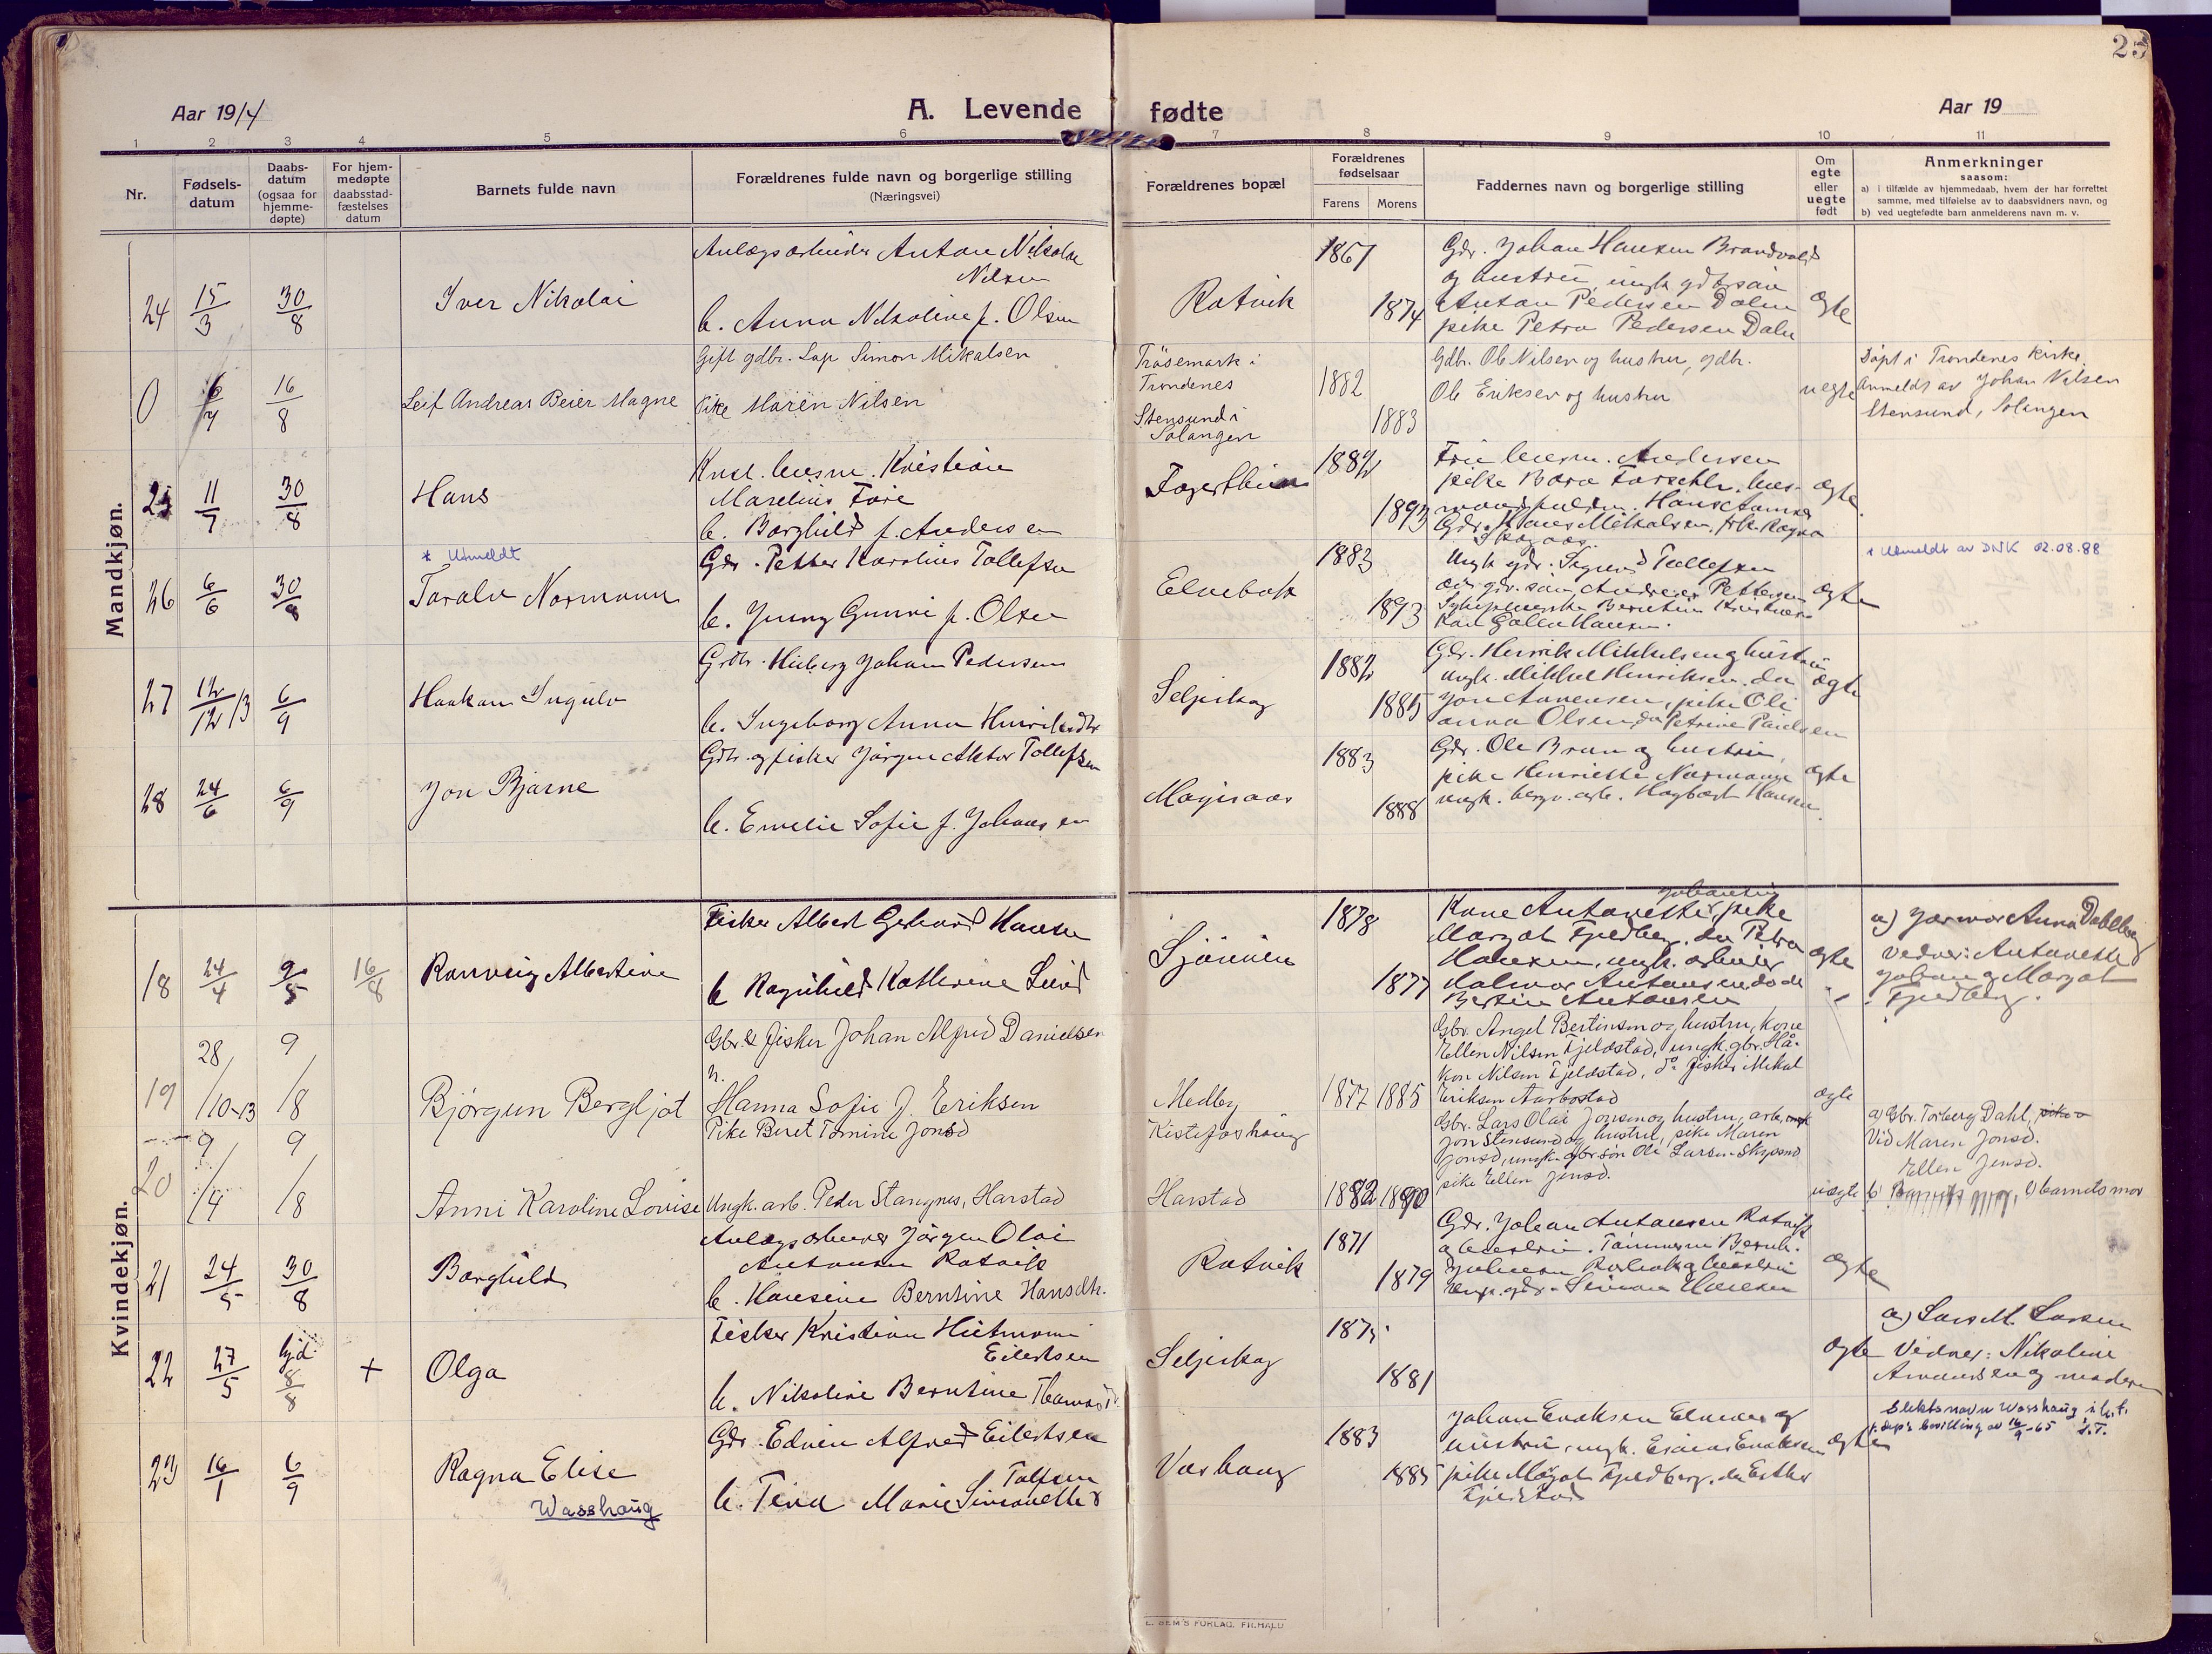 25
Aar 1914
A. Levende fødte
Aar 19
1 2 3 4 5 6 7 8 9 10 11
Nr.
Fødsels-
datum
Daabs-
datum
(ogsaa for
hjemme-
døpte)
For hjem-
medøpte
daabsstad-
fæstelses
datum
Barnets fulde navn
Forældrenes fulde navn og borgerlige stilling
(Næringsvei)
Forældrenes bopæl
Forældrenes
fødselsaar
Farens Morens
Faddernes navn og borgerlige stilling
Om
egte
eller
uegte
født
Anmerkninger
saasom:
a) i tilfælde av hjemmedaab, hvem der har forrettet
samme, med tilføielse av to daabsvidners navn, og
b) ved uegtefødte barn anmelderens navn m. v.
Mandkjøn.
24 15/3 30/8
Iver Nikolai
Anlægsarbeider Anton Nikolai
Nilsen
h. Anna Nikoline f. Olsen
Rotvik
1867 1874
Gdr. Johan Hansen Brandvold
og hustru, ungk. gdrsøn
Anton Pedersen Dalen
pike Petra Pedersen Dalen
ægte
0 6/7 16/8
Leif Andreas Beier Magne
Gift gdbr. Lap Simon Mikalsen
Pike Maren Nilsen
Trøsemark i
Trondenes
Stensund i
Salangen
1882 1883
Gdbr. Ole Nilsen og hustru, gdbr.
Ole Eriksen og hustru
uegte
Døpt i Trondenes kirke
Anmeldt av Johan Nilsen
Stensund, Salangen
25 11/7 30/8
Hans
Marelius Fore
h. Borghild f. Andersen
1882 1893
Andersen
ægte
26 6/6 30/8
* Utmeldt
Toralv Normann
Gdr. Petter Karolius Tollefsen
h. Jenny Gunvi f. Olsen
Elvebak
1883 1893
Ungk. gdr. Sigurd Tollefsen
gdr. søn Andreas Pettersen
ægte
* Utmeldt av DNK 02.08.88
27 12/12 13 6/9
Haakon Ingulv
Gdbr. Hieberg Johan Pedersen
h. Ingeborg Anna Henriksdtr
Seljeskog
1882 1885
Gdr. Henrik Mikkelsen og hustru
ungk. Mikkel Henriksen, do
Jon Arnensen, pike Oli
anna Olsen, do Petrine Paulsen
ægte
28 24/6 6/9
Jon Bjarne
Gdbr. og fisker Jørgen Aktor Tollefsen
h. Emelie Sofie f. Johansen
Mogisaas
1883 1888
Gdr. Ole Brun og hustru,
pike Henriette Normann
ungk. bergv. arb. Hagbart Hansen
ægte
Kvindekjøn.
18 24/4 9/5 16/8
Ranveig Albertine
Fisker Albert Gerhard Hansen
h Ragnhild Kathrine Lund
Sjøvien
1878 1877
Johansen
Kone Antonette, pike
Margot Fjeldberg, do Petra
Hansen, ungk. arbeider
Halvor Antonsen do do
Bertin Antonsen
ægte
a) Jormor Anna Dahlberg
vedner: Antonette
Johan og Margot
Fjeldberg.
19 28/10-13 9/8
Bjørgun Bergljot
Gbr. & fisker Johan Alfred Danielsen
h.
Hanna Sofie f. Eriksen
Medby
1877 1885
Gbr. Angel Bertinsen og hustru, kone
Ellen Nilsen Fjeldstad, ungk. gbr. Hå-
kon Nilsen Fjeldstad, do fisker Mikal
Eriksen Aarbostad
ægte
a) Gbr. Torberg Dahl,
Vid Maren Jonsd.
Ellen Jensd.
20 9/4 9/8
Anni Karoline Lovise
Pike Beret Tomine Jonsd
Ungk. arb. Peder Stangnes, Harstad
Kistefoshaug
Harstad
1882 1890
Gbr. Lars Olai Jonsen og hustru, arb.
Jon Stensund og hustru, pike Maren
Jonsd, ungk. gbr søn Ole Larsen
pike Ellen Jensd.
uægte
b) barnets mor
21 24/5 30/8
Borghild
Anlægsarbeider Jørgen Olai
Antonsen Rotvik
h. Hansine Berntine Hansdtr.
Rotvik
1871 1879
Gdr. Johan Antonsen Rotvik
og hustru. Tømmerm Bernh.
Johnsen Rotvik og hustru
ungk. gdr. Simon Hansen
ægte
22 27/5 hjd. 8/8 +
Olga
Fisker Kristian Hietmann
Eilertsen
h. Nikoline Berntine Thomasd.
Seljeskog
1875 1881
ægte
a) Lars M. Larsen
Vidner: Nikoline
Amundsen og moderen
23 16/1 6/9
Ragna Elise
Wasshaug
Gdr. Edvin Alfred Eilertsen
Tolfsen
h. Tina Marie Simonette
Vashaug
1883 1885
Johan Enoksen Elvenes og
hustru, ungk. Esaias Enoksen
pike Margot Fjeldberg, do Esther
Fjeldstad
ægte
Slektsnavn Wasshaug i h.t.
j. dep's bevilling av 16/9-65
E. SEM'S FORLAG, F.HALD